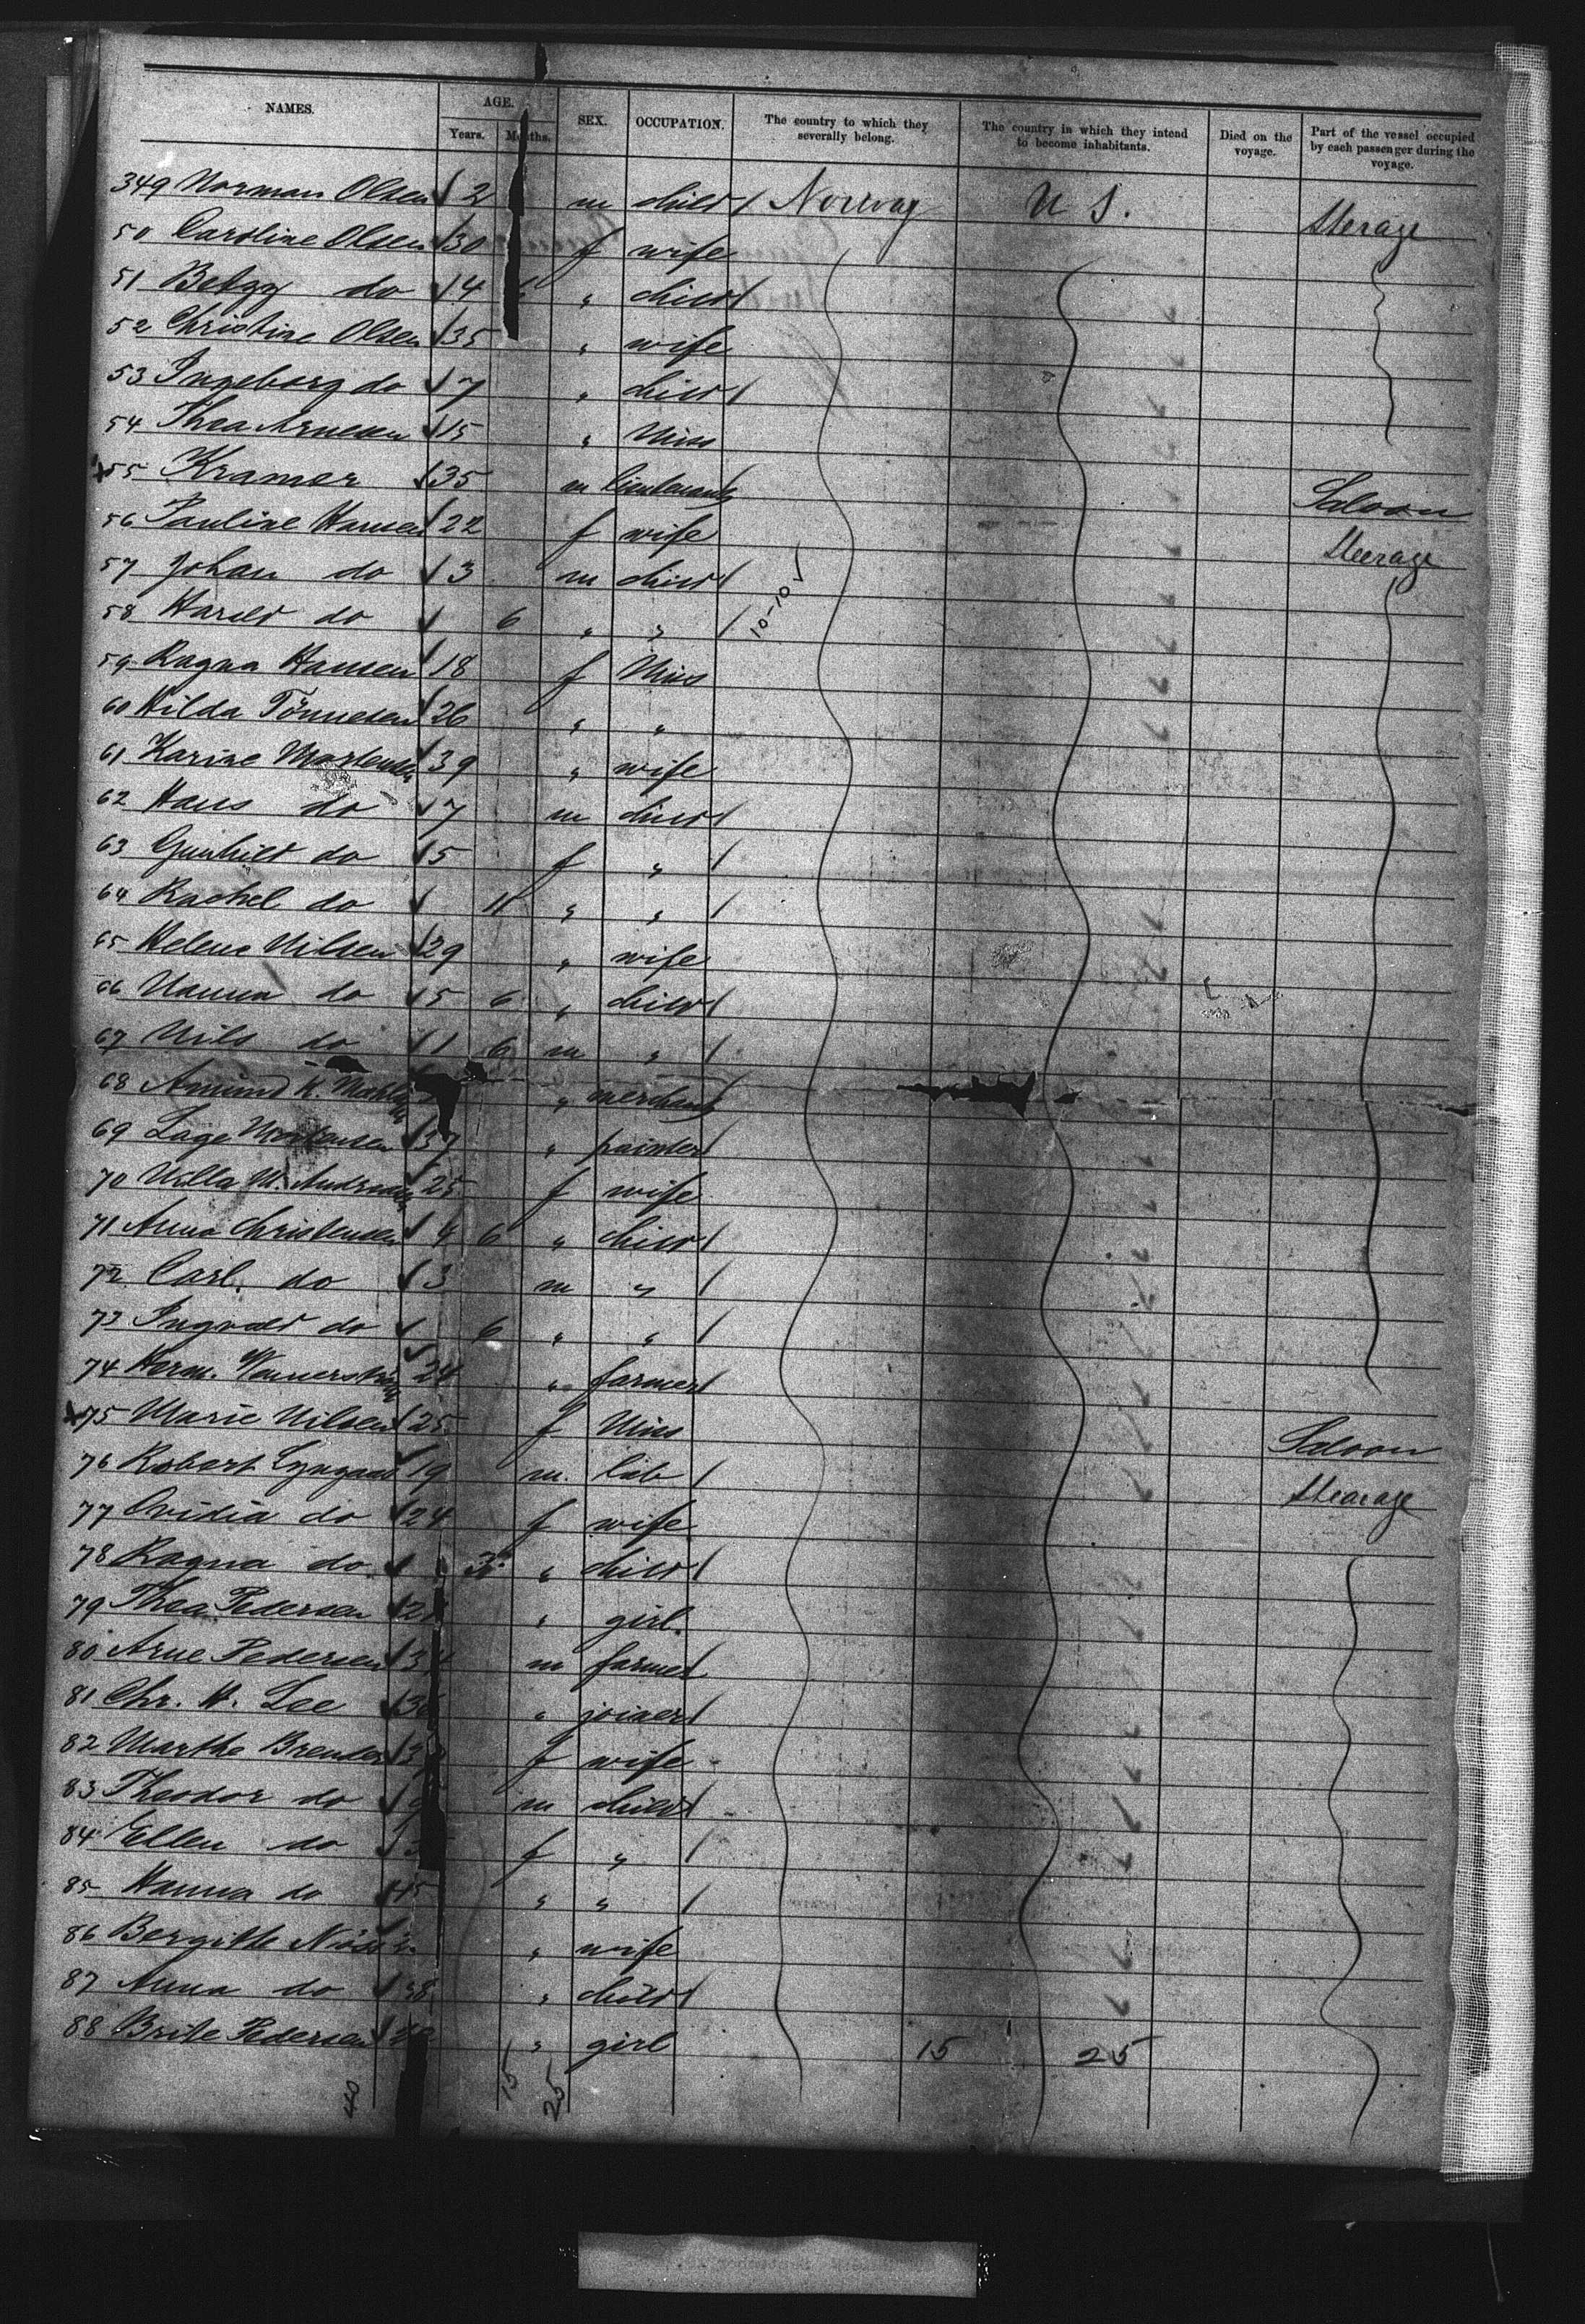 NAMES. AGE. SEX. OCCUPATION. The country to which they severally belong. The country in which they intend to become inhabitants. Died on the voyage. Part of the vessel occupied by each passenger during the voyage.
Years. Months.
349 Norman Olsen 2 m child Norway U S. Sterage
50 Caroline Olsen 30 f wife
51 Betzy do 4 " child
52 Christine Olsen 35 " wife
53 Ingeborg do 7 " child
54 Thea Arnesen 15 " Miss
55 Kramer 35 m lieutenant Saloon
56 Pauline Hansen 22 f wife Steerage
57 Johan do 3 m child
58 Harold do 6 " " 10-10
59 Ragna Hansen 18 f Miss
60 Hilda Tönnesen 26 " "
61 Karine Mortensen 39 " wife
62 Hans do 7 m child
63 Gunhild do 5 f "
64 Rachel do 11 " "
65 Helene Nilsen 29 " wife
66 Nanna do 5 6 " child
67 Nils do 1 6 m "
68 Amund K. " merchant
69 Lage Mortensen 37 " painter
70 M. 25 f wife
71 Anna Christensen 4 6 " child
72 Carl. do 3 m "
73 Ingvald do 6 " "
74 Herm. 24 " farmer
75 Marie Nilsen 25 f Miss Saloon
76 Robert Lyngaas 19 m. lab Stearage
77 Ovidia do 24 f wife
78 Ragna do 3 " child
79 Thea Pedersen " girl.
80 Arne Pedersen m farmer
81 Chr. H. Lee " joiner
82 Marthe f wife
83 Theodor do m child
84 Ellen do f "
85 Hanna do " "
86 Bergitte " wife
87 Anna do " child
88 Brite Pedersen " girl 15 25
40 15 25